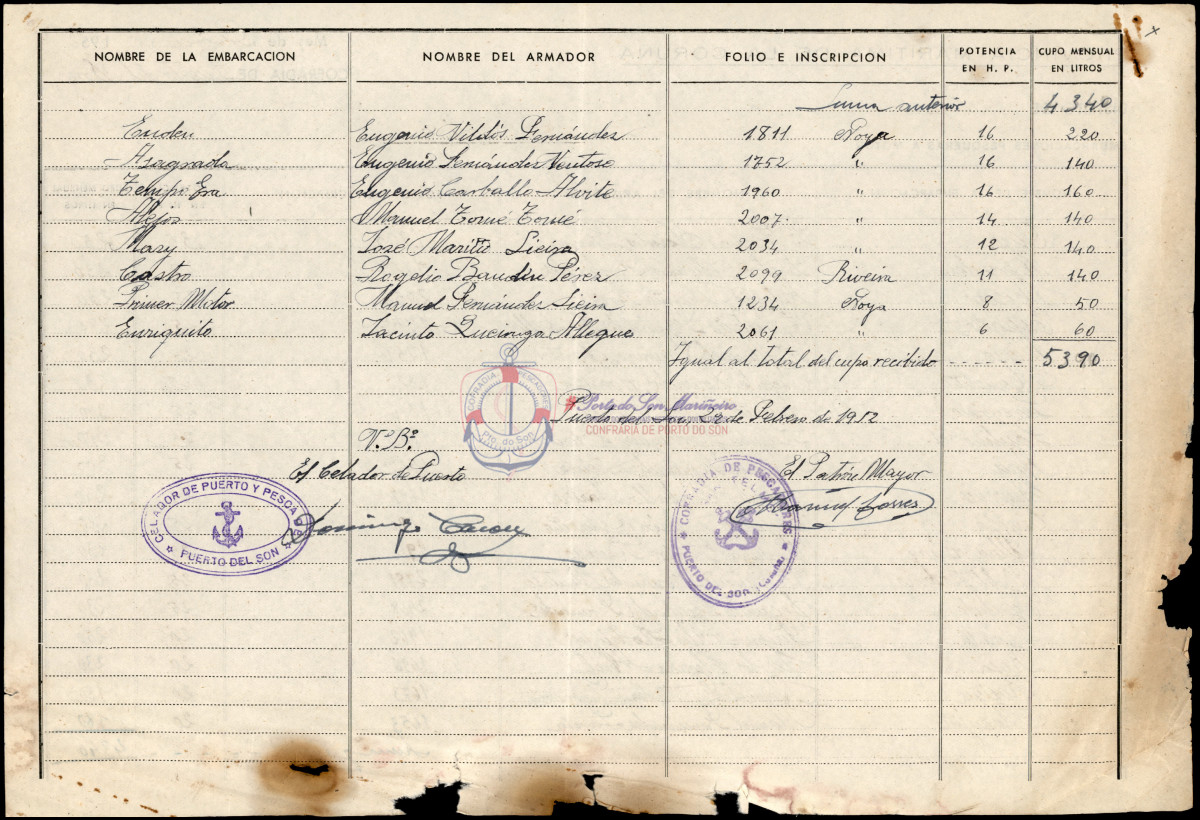 NOMBRE DE LA EMBARCACION NOMBRE DEL ARMADOR FOLIO E INSCRIPCION POTENCIA EN H. P. CUPO MENSUAL EN LITROS
Suma anterior 4340
Eugenio Fernández 1811 Noya 16 220
Asagrada Eugenio Fernández Ventoso 1752 " 16 140
Tempo Era Eugenio Carballo Alvite 1960 " 16 160
Alejos Manuel Tomé Tomé 2007 " 14 140
Mary José Lieira 2034 " 12 140
Castro Rogelio Pérez 2099 Riveira 11 140
Primer Motor Manuel Fernández Sieira 1234 Noya 8 50
Enriquito Jacinto Queiruga Allegue 2061 " 6 60
Igual al total del cupo recibido 5390
COFRADIA PESCADORES
Pto. do Son
Porto do Son Mariñeiro
CONFRARIA DE PORTO DO SON
Puerto del Son, de Febrero de 1952
V.º B.º
El Celador de Puerto El Patrón Mayor
CELADOR DE PUERTO Y PESCA
PUERTO DEL SON
Domingo
COFRADIA DE PESCADORES
PUERTO DEL SON (Coruña)
Manuel Torres